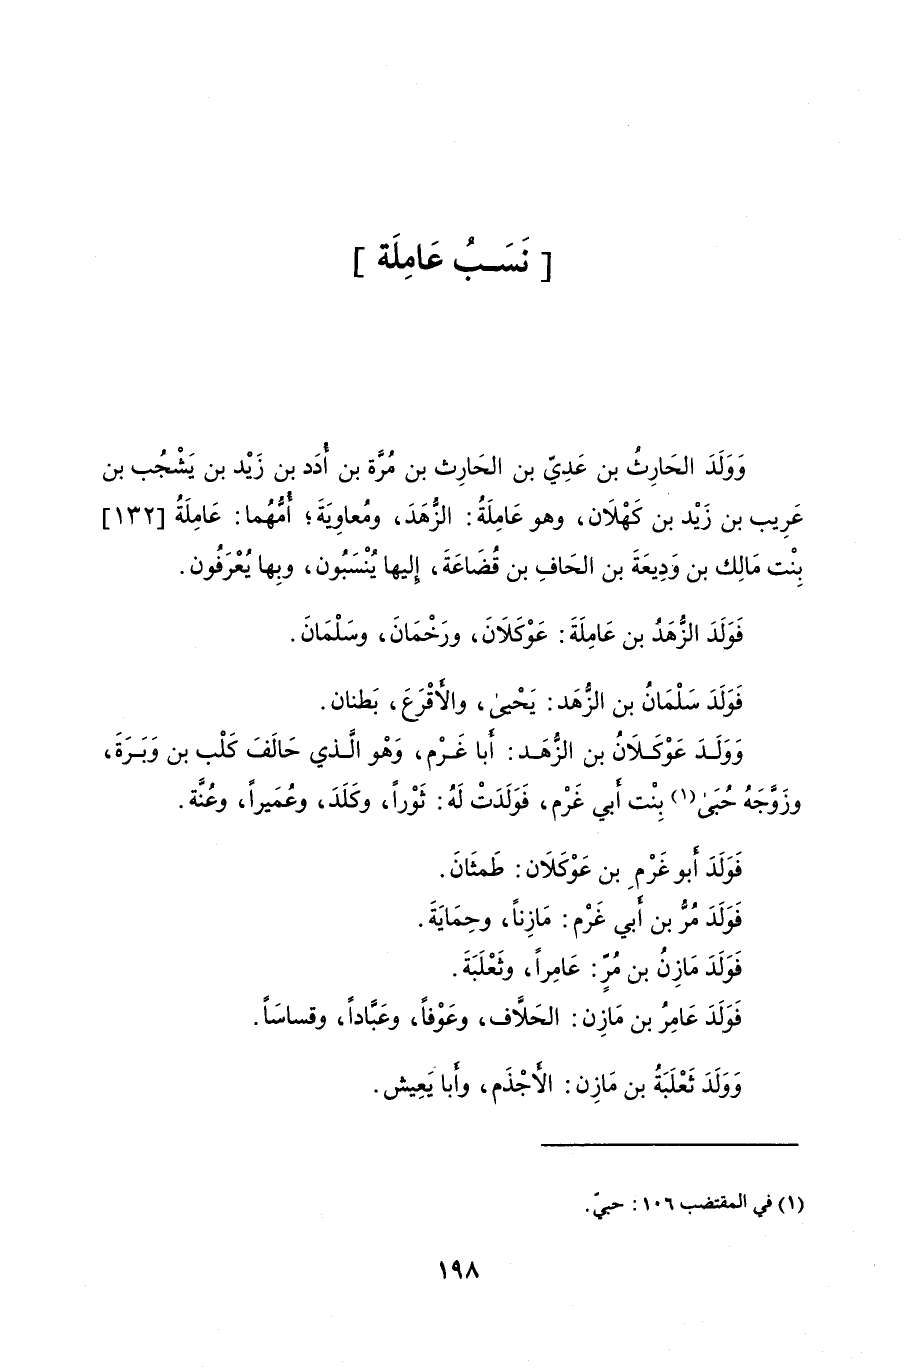 [ نَسَبُ عَامِلَة ]
وَوَلَدَ الحَارِثُ بن عَدِيّ بن الحَارِث بن مُرَّة بن أُدَد بن زَيْد بن يَشْجُب بن
عَرِيب بن زَيْد بن كَهْلَان، وهو عَامِلَةُ: الزُّهَدَ، ومُعاوِيَةَ؛ أُمُّهُما: عَامِلَةُ [١٣٢]
بِنْت مَالِك بن وَدِيعَةَ بن الحَافِ بن قُضَاعَةَ، إليها يُنْسَبُون، وبِها يُعْرَفُون.
فَوَلَدَ الزُّهَدُ بن عَامِلَةَ: عَوْكَلَانَ، ورَخْمَانَ، وسَلْمَانَ.
فَوَلَدَ سَلْمَانُ بن الزُّهَد: يَحْيىٰ، والأَقْرَعَ، بَطنان.
وَوَلَدَ عَوْكَلَانُ بن الزُّهَد: أَبا غَرْم، وَهْو الَّذي حَالَفَ كَلْب بن وَبَرَةَ،
وزَوَّجَهُ حُبَىٰ(١) بِنْت أَبي غَرْم، فَوَلَدَتْ لَهُ: ثَوْراً، وكَلَدَ، وعُمَيراً، وعُنَّة.
فَوَلَدَ أَبو غَرْمِ بن عَوْكَلَان: طَمثَانَ.
فَوَلَدَ مُرُّ بن أَبي غَرْم: مَازِناً، وحِمَايَةَ.
فَوَلَدَ مَازِنُ بن مُرٍّ: عَامِراً، وثَعْلَبَةَ.
فَوَلَدَ عَامِرُ بن مَازِن: الحَلَّاف، وعَوْفاً، وعَبَّاداً، وقساسَاً.
وَوَلَدَ ثَعْلَبَةُ بن مَازِن: الأَجْذَم، وأَبا يَعِيش.
(١) في المقتضب ١٠٦: حبيّ.
١٩٨